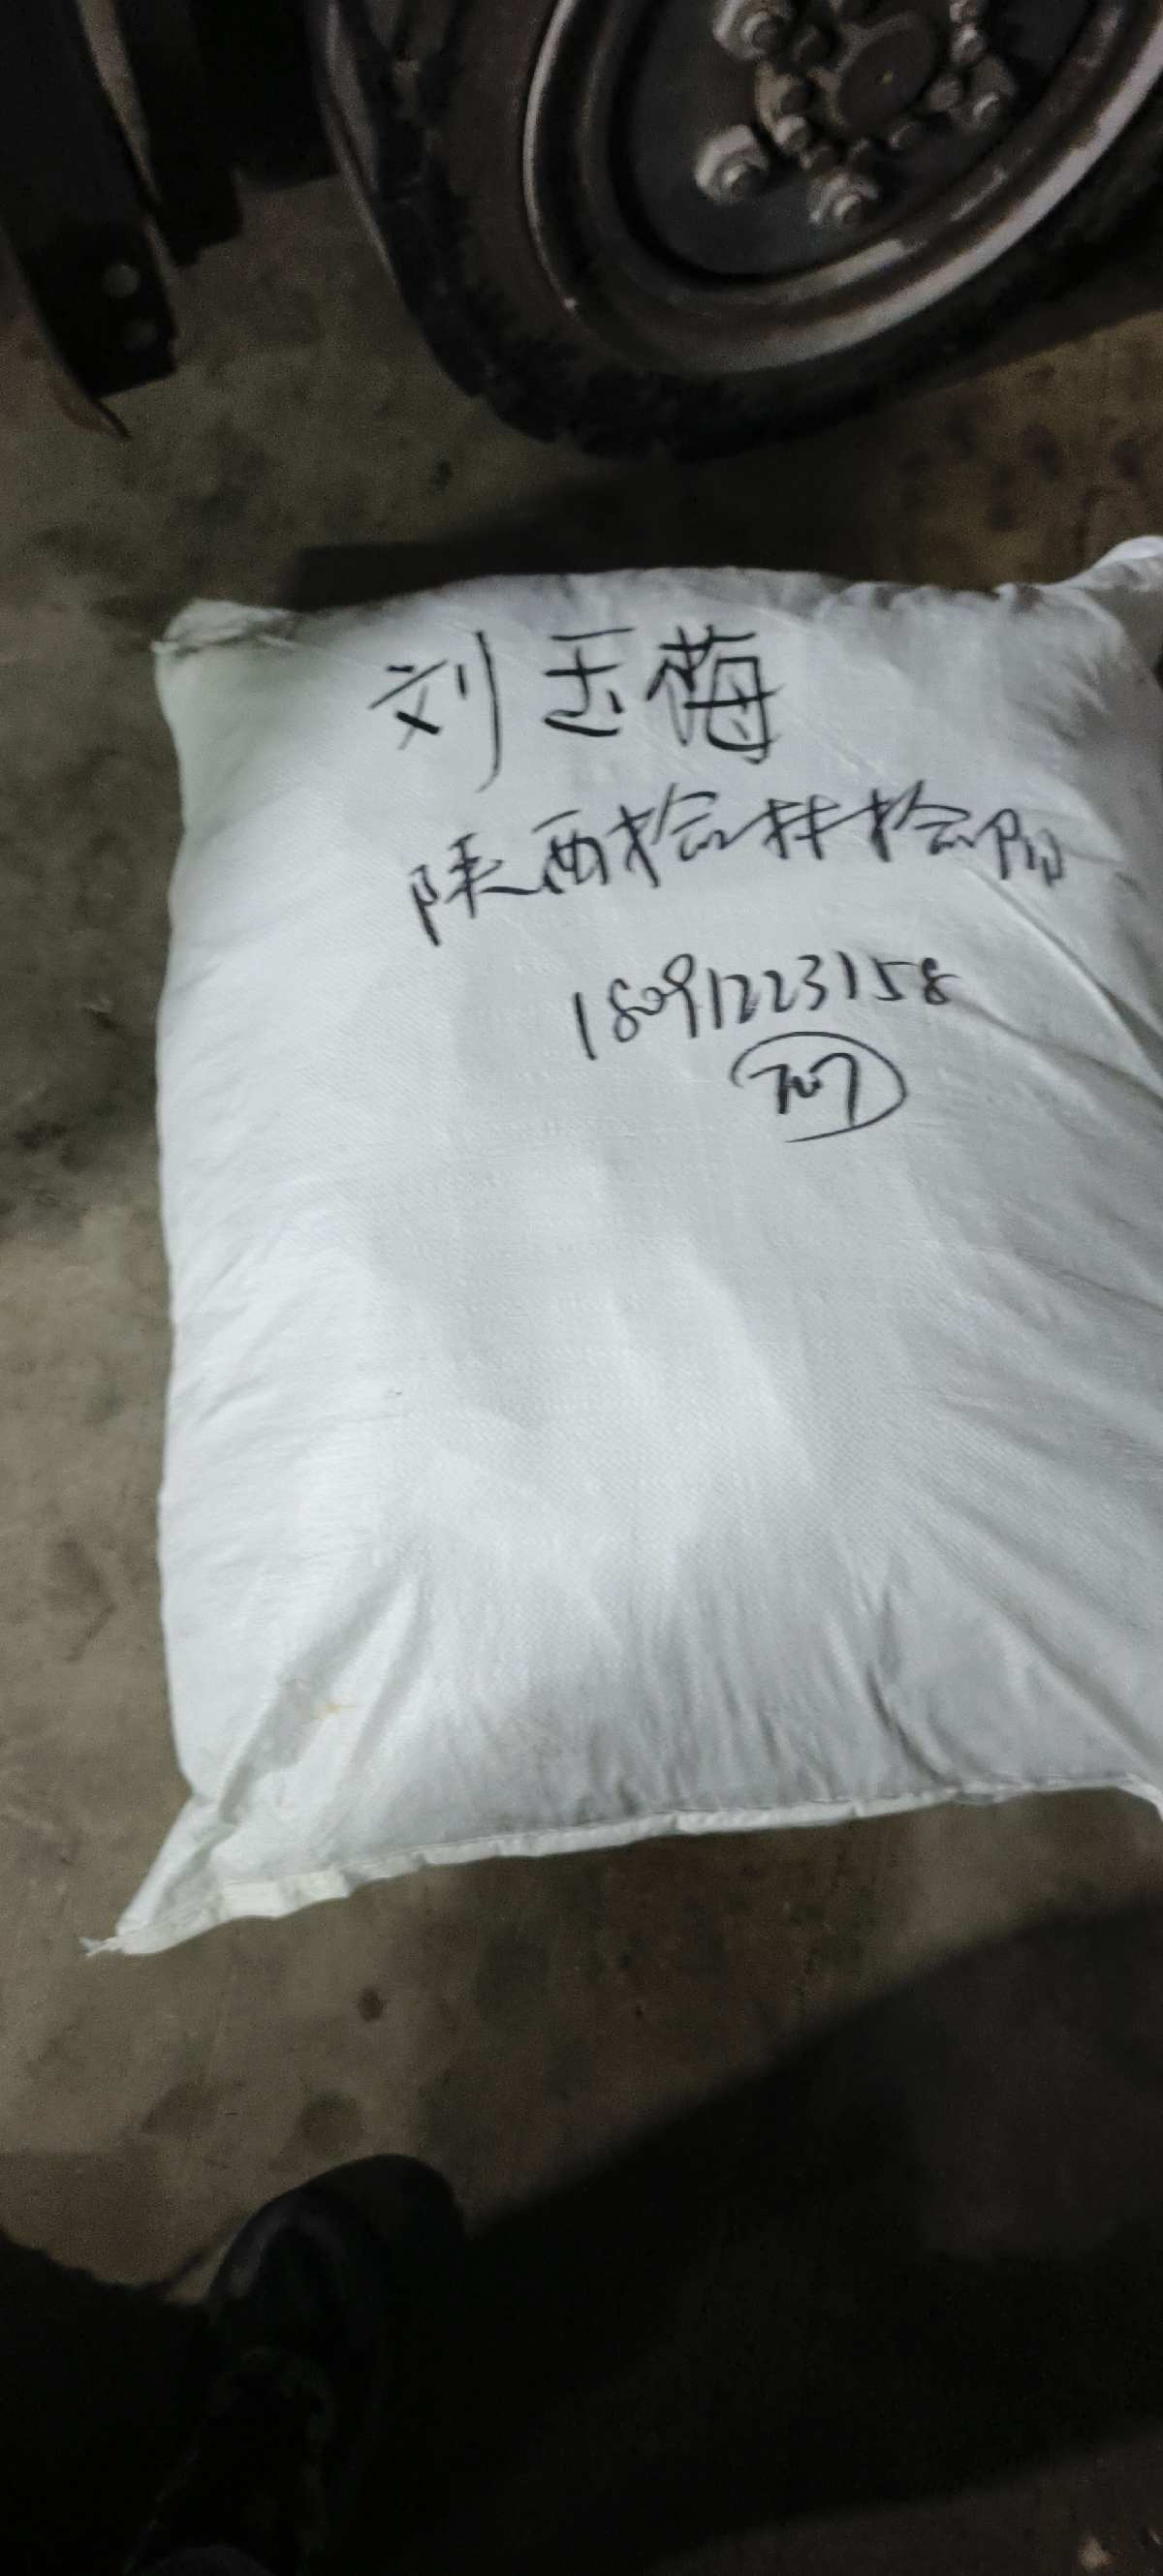 刘玉梅
陕西榆林榆阳
18091223158